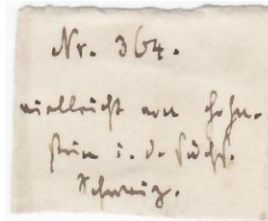 Nr. 364.
vielleicht von Hohn-
stein i. d. sächs.
Schweiz.